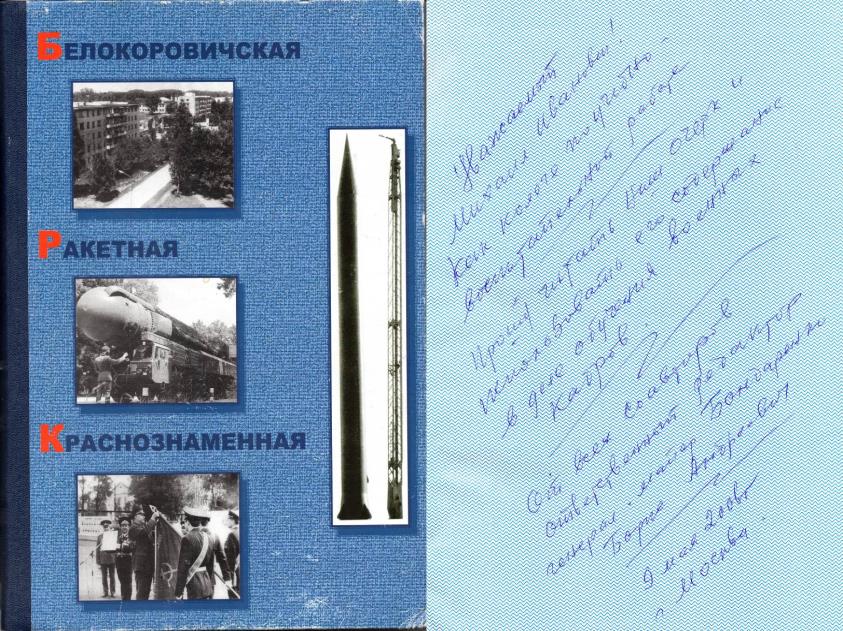 БЕЛОКОРОВИЧСКАЯ
РАКЕТНАЯ
КРАСНОЗНАМЕННАЯ
Уважаемый
Михаил Иванович!
Как коллеге по учебно-
воспитательной работе
Прошу читать наш очерк и
использовать его содержание
в деле обучения военных
кадров.
От всех соавторов
ответственный редактор
генерал-майор Бондаренко
Борис Андреевич
9 мая
г. Москва.